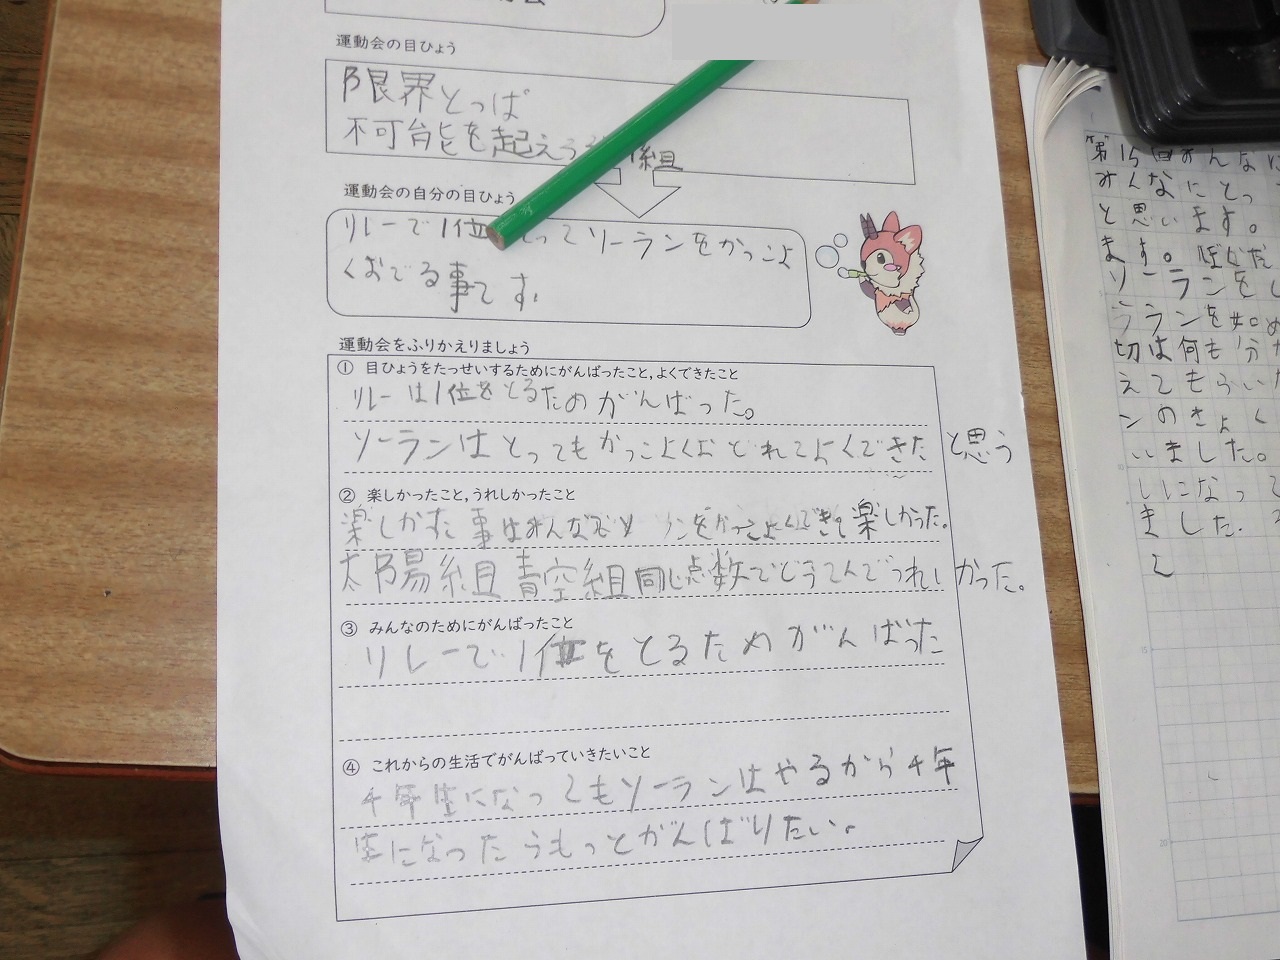 運動会の目ひょう
限界とっぱ
不可能を起えろ
組
運動会の自分の目ひょう
リレーで1位とってソーランをかっこよ
くおでる事です。
運動会をふりかえりましょう
① 目ひょうをたっせいするためにがんばったこと,よくできたこと
リレーは1位をとるためがんばった。
ソーランはとってもかっこよくおどれてよくできたと思う
② 楽しかったこと,うれしかったこと
楽しかた事はみんなで
かっこよくできて楽しかった。
太陽組青空組同じ点数でどうてんでうれしかった。
③ みんなのためにがんばったこと
リレーで1位をとるためがんばった
④ これからの生活でがんばっていきたいこと
年生になってもソーランはやるから
年
生になったらもっとがんばりたい。
第15回みんなに
みんなにとっ
と思います。
ます。ぼくだ
ソーランをし
ランを始め
切は何も分か
えてもらいた
ンのきょく
いました。
しになって
ました。